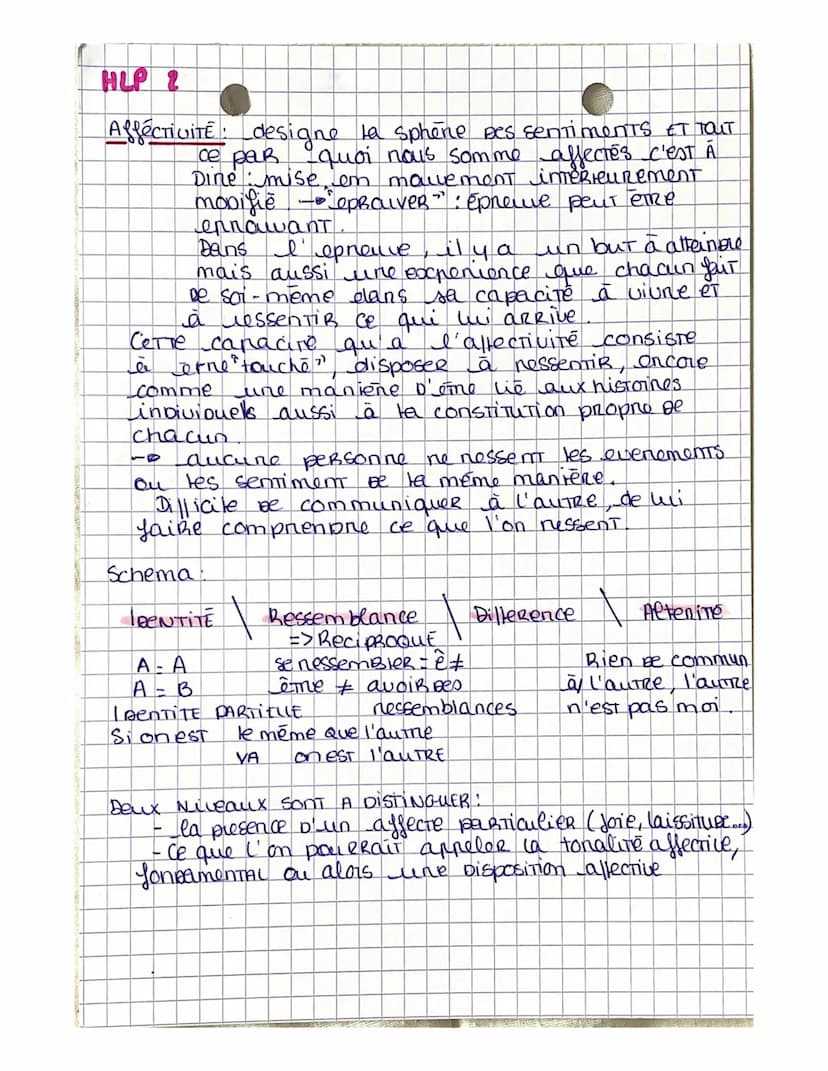 HLP 2
AFFÉCTIVITÉ : designe la sphère des sentiments ET TOUT
ce par quoi nous somme affectés c'est À
DIRE : mise en mouvement intérieurement
modifié → "éprouver" : épreuve peut être
éprouvant.
Dans l'epreuve, il y a un but à atteindre
mais aussi une expérience que chacun fait
de soi-même dans sa capacité à vivre ET
à ressentir ce qui lui arrive.
Cette capacité qu'a l'affectivité consiste
à être "touché", disposer à ressentir, encore
comme une manière d'être lié aux histoires
individuels aussi à la constitution propre de
chacun.
→ aucune personne ne ressent les evenements
ou les sentiment de la même manière.
Difficile de communiquer à l'autre, de lui
faire comprendre ce que l'on ressent.
Schema :
IDENTITÉ \ Ressemblance \ Difference \ Altérité
=> Réciproque
A = A se ressembler = ê ≠ Rien de commun
A = B ême ≠ avoir des à l'autre, l'autre
IDENTITE PARTITLE ressemblances n'est pas moi.
Si on est le même que l'autre
VA on est l'autre
Deux niveaux sont a distinguer :
- la présence d'un affecte particulier (joie, laissitude...)
- Ce que l'on pourrait appeler la tonalité affective,
fondamental ou alors une disposition affective